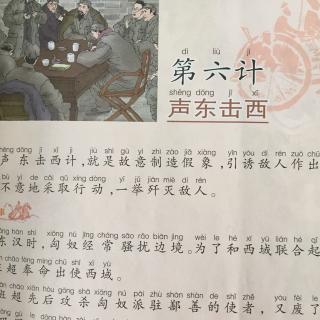 dì liù jì
第六计
shēng dōng jī xī
声东击西
shēng dōng jī xī jì jiù shì gù yì zhì zào jiǎ xiàng yǐn yòu dí rén zuò chū
声东击西计,就是故意制造假象,引诱敌人作出
bú yì de cǎi qǔ xíng dòng yì jǔ jiān miè dí rén
不意地采取行动,一举歼灭敌人。
hàn shí xiōng nú jīng cháng sāo rǎo biān jìng wèi le hé xī yù lián hé qǐ
东汉时,匈奴经常骚扰边境。为了和西域联合起
chāo fèng mìng chū shǐ xī yù
班超奉命出使西域。
chāo xiān hòu gōng shā xiōng nú pài zhù shàn shàn de shǐ zhě yòu fèi le
班超先后攻杀匈奴派驻鄯善的使者,又废了